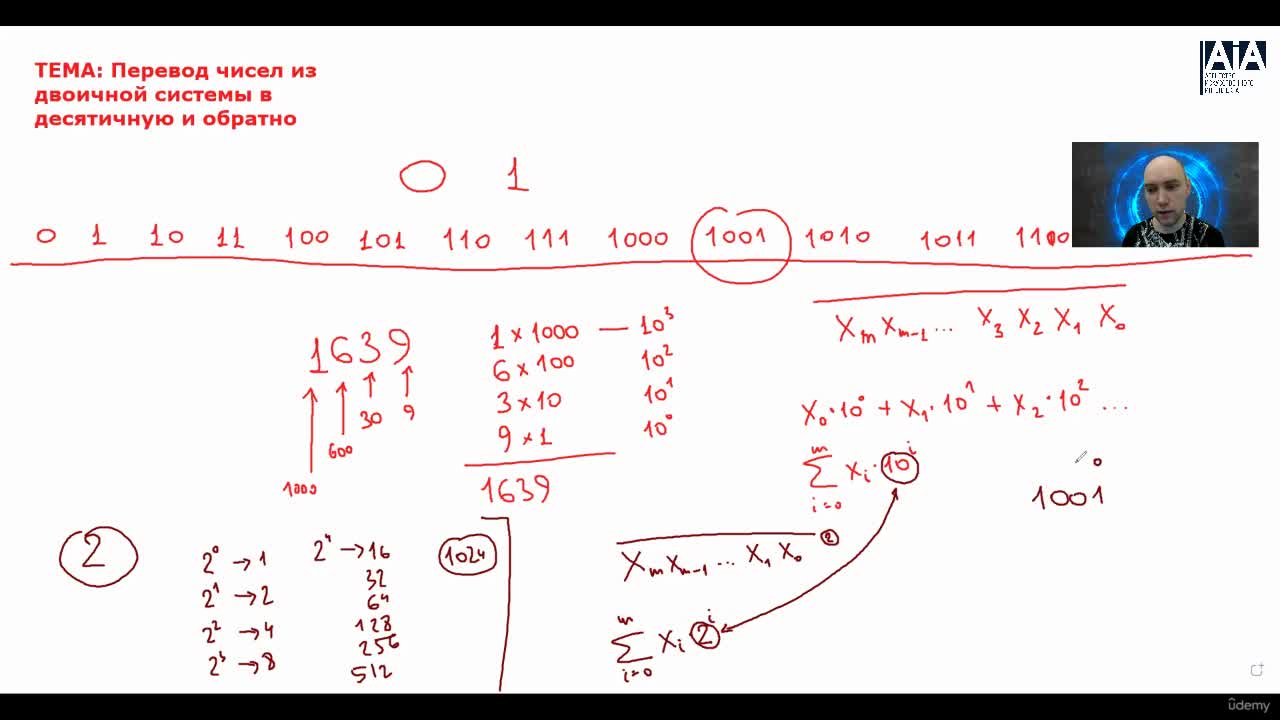 ТЕМА: Перевод чисел из
двоичной системы в
десятичную и обратно
AiA
0 1
0 1 10 11 100 101 110 111 1000 1001 1010 1011 1100
1639
1000 600 30 9
1 × 1000 — 10³
6 × 100 10²
3 × 10 10¹
9 × 1 10⁰
1639
Xₘ Xₘ₋₁ ... X₃ X₂ X₁ X₀
X₀·10⁰ + X₁·10¹ + X₂·10² ...
m
∑ Xᵢ·10ⁱ
i=0
0
1001
2
2⁰ → 1
2¹ → 2
2² → 4
2³ → 8
2⁴ → 16
32
64
128
256
512
1024
Xₘ Xₘ₋₁ ... X₁ X₀ 2
m
∑ Xᵢ 2ⁱ
i=0
ûdemy